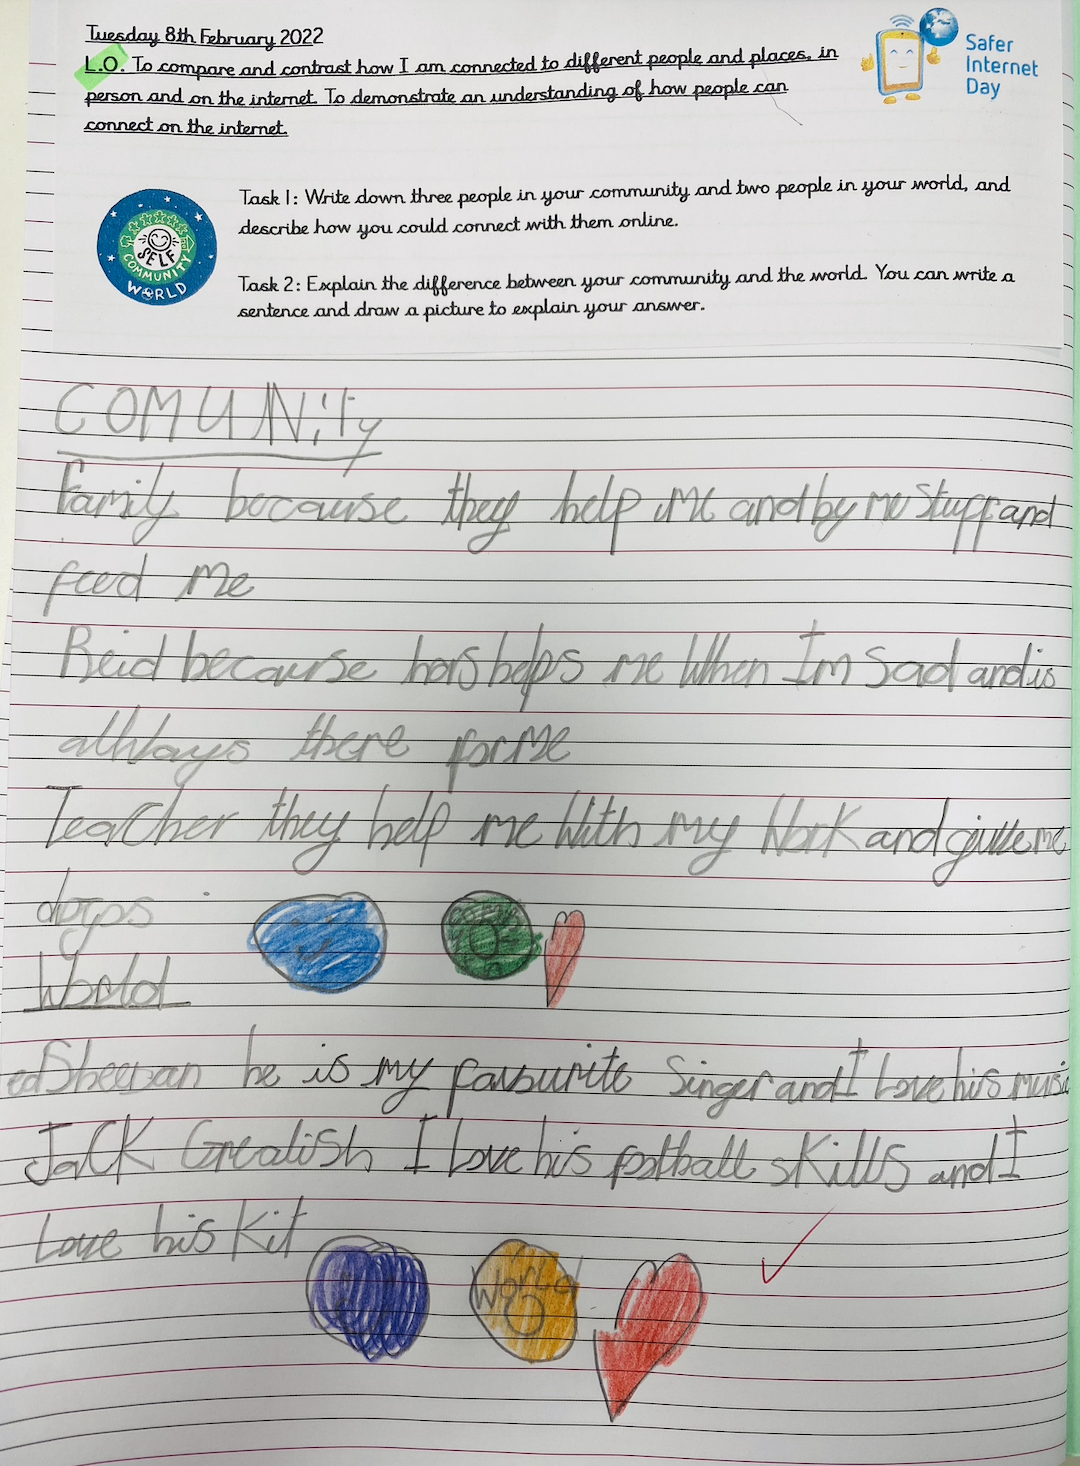 Tuesday 8th February 2022
L.O. To compare and contrast how I am connected to different people and places, in
person and on the internet. To demonstrate an understanding of how people can
connect on the internet.
Safer
Internet
Day
SELF
COMMUNITY
WORLD
Task 1: Write down three people in your community and two people in your world, and
describe how you could connect with them online.
Task 2: Explain the difference between your community and the world. You can write a
sentence and draw a picture to explain your answer.
COMUNity
Family because they help me and by me stuff and
feed me
Reid because helps me when Im sad and is
allways there for me
Teacher they help me with my work and give me
World
ed Sheeran he is my favourite singer and I love his music
Jack Grealish I love his football skills and I
love his kit
World